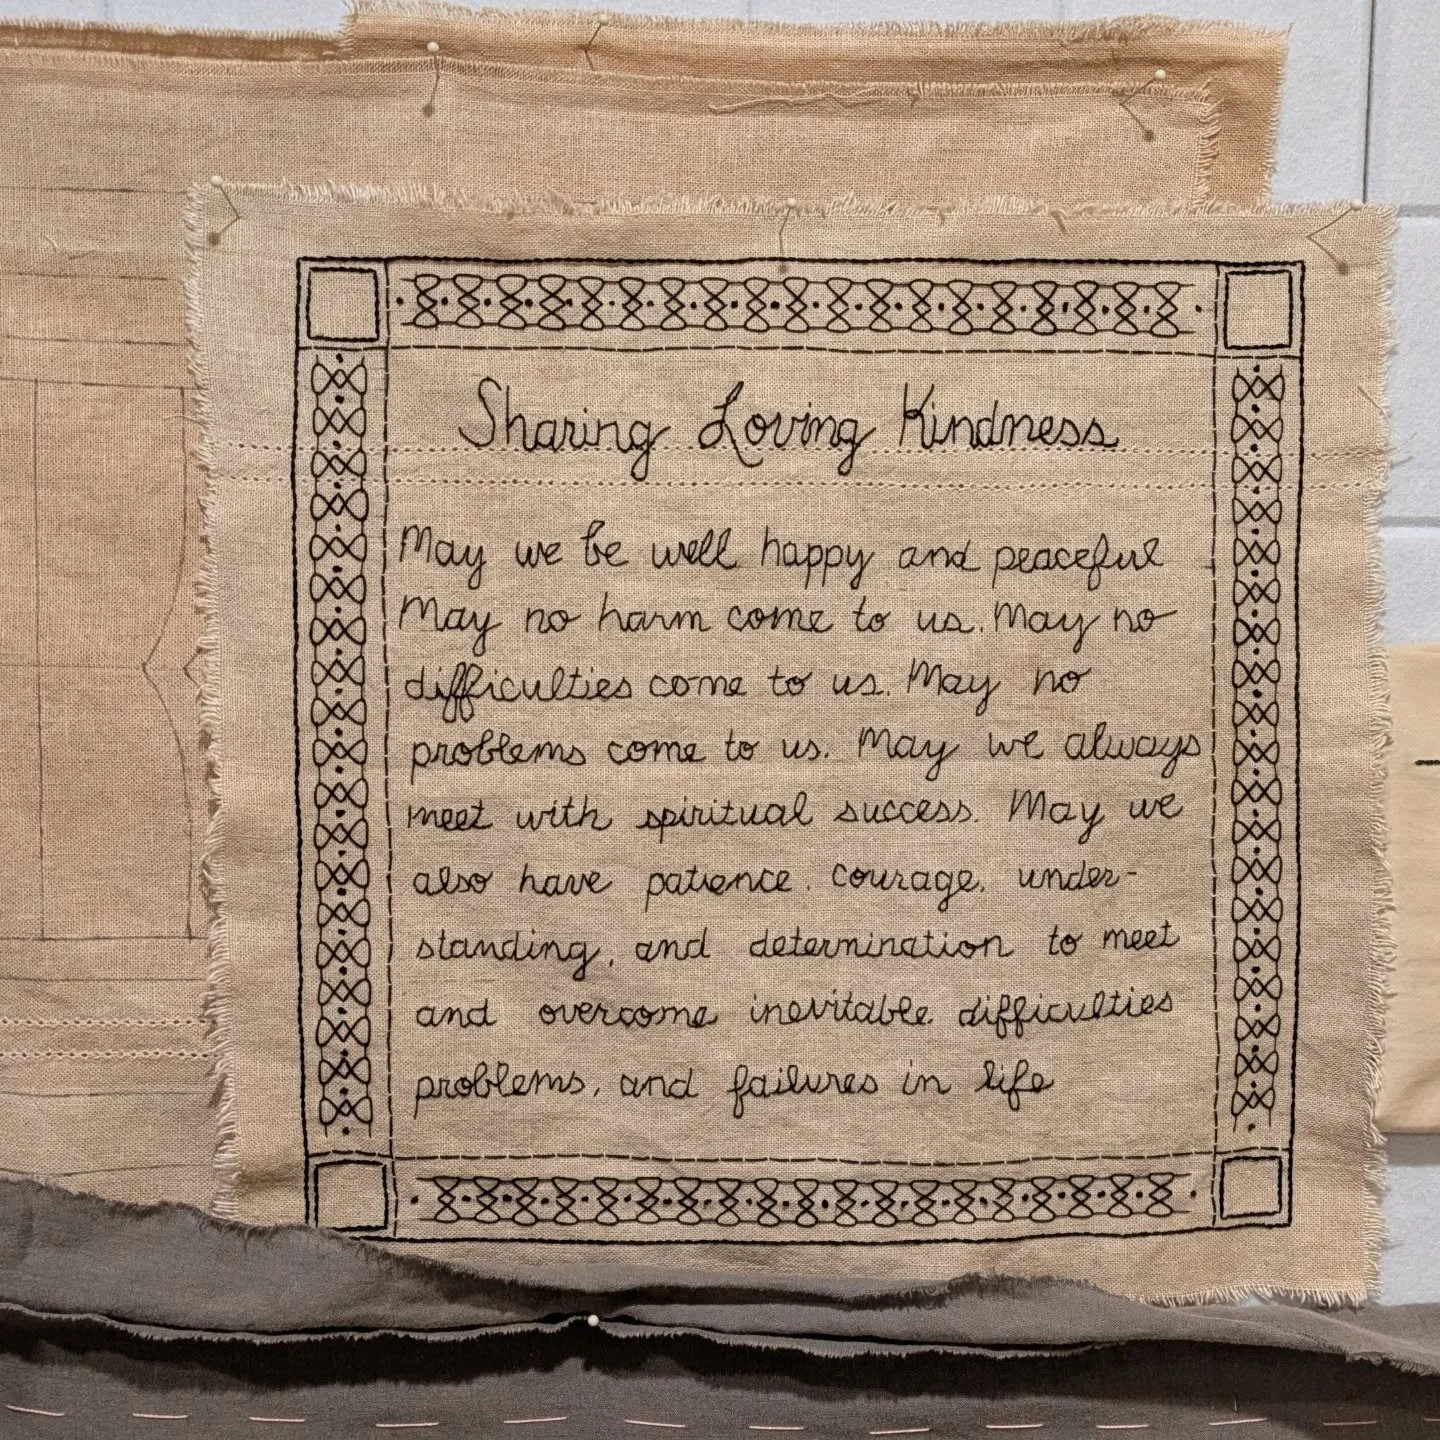 Sharing Loving Kindness
May we be well happy and peaceful
May no harm come to us. May no
difficulties come to us. May no
problems come to us. May we always
meet with spiritual success. May we
also have patience. courage, under-
standing, and determination to meet
and overcome inevitable difficulties
problems, and failures in life